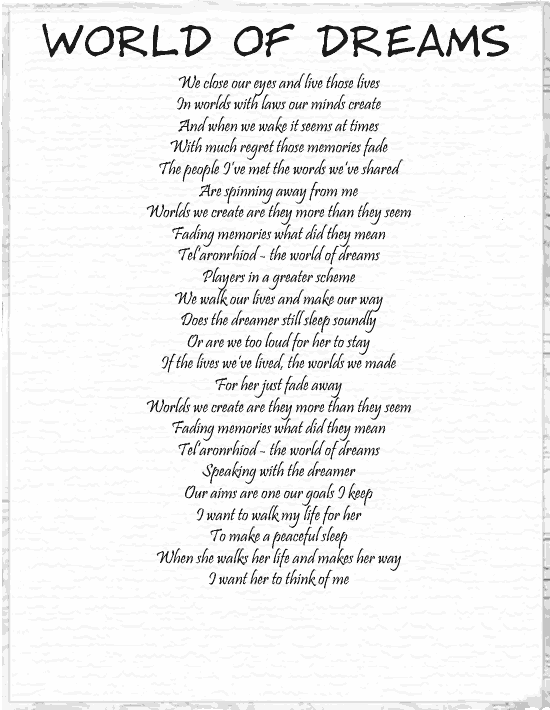 WORLD OF DREAMS
We close our eyes and live those lives
In worlds with laws our minds create
And when we wake it seems at times
With much regret those memories fade
The people I've met the words we've shared
Are spinning away from me
Worlds we create are they more than they seem
Fading memories what did they mean
Tel'aronrhiod ~ the world of dreams
Players in a greater scheme
We walk our lives and make our way
Does the dreamer still sleep soundly
Or are we too loud for her to stay
If the lives we've lived, the worlds we made
For her just fade away
Worlds we create are they more than they seem
Fading memories what did they mean
Tel'aronrhiod ~ the world of dreams
Speaking with the dreamer
Our aims are one our goals I keep
I want to walk my life for her
To make a peaceful sleep
When she walks her life and makes her way
I want her to think of me